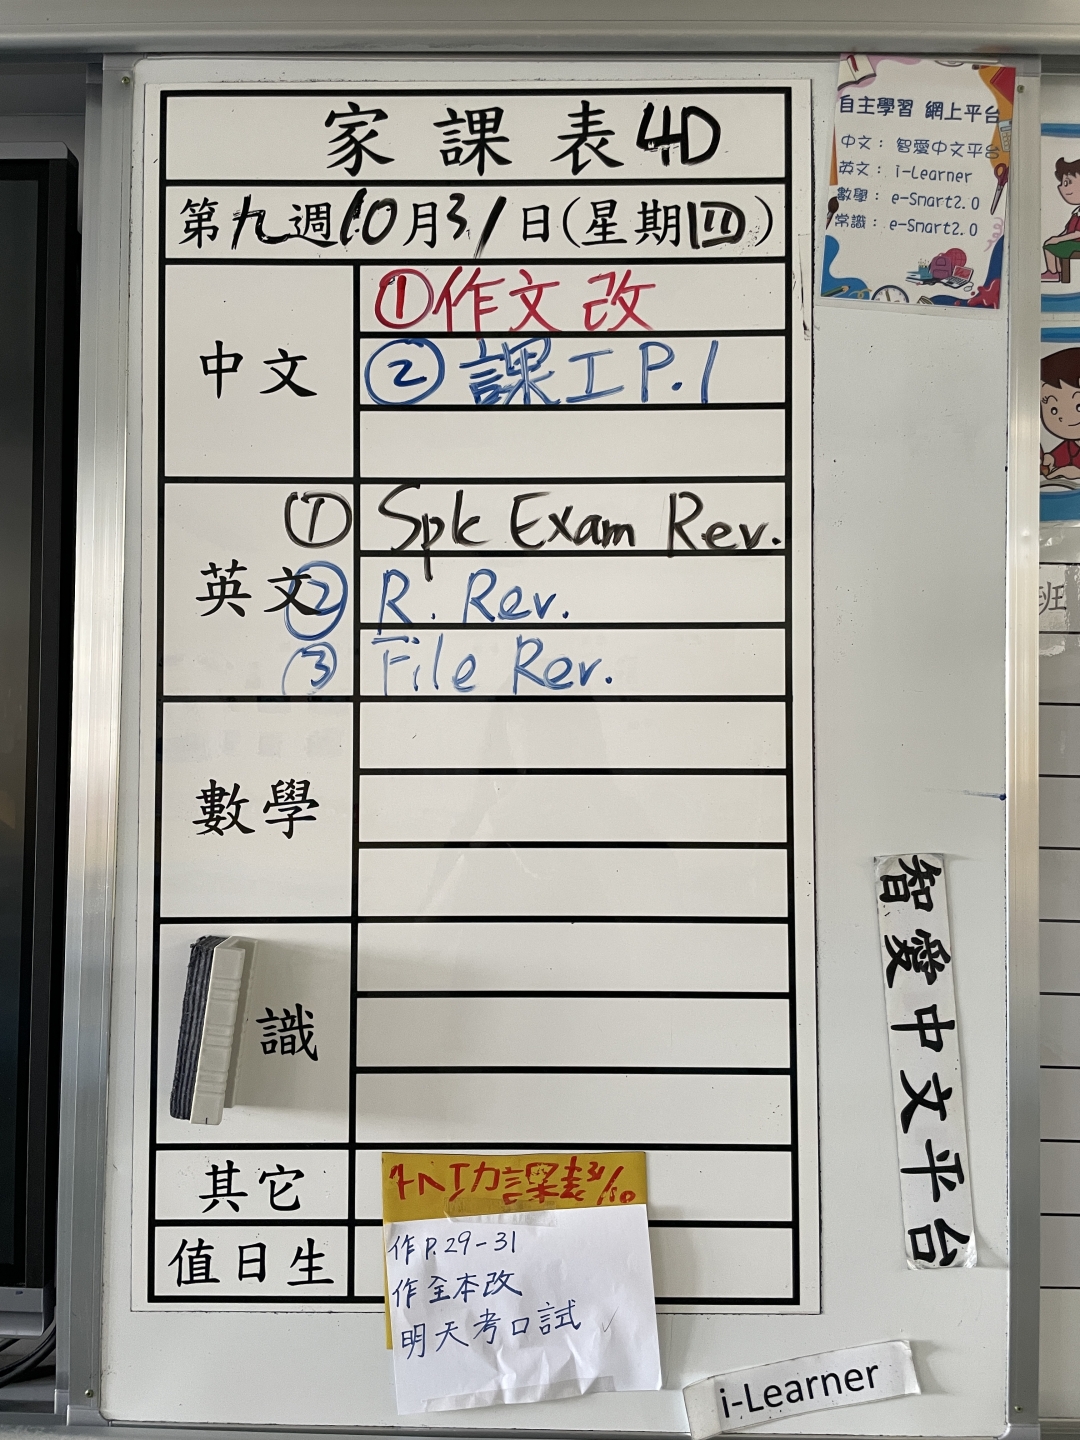 家課表4D
第九週10月31日(星期四)
中文
①作文改
②課工P.1
英文
① Spk Exam Rev.
② R. Rev.
③ File Rev.
數學
識
其它
值日生
功課表31/10
作P.29-31
作全本改
明天考口試
自主學習 網上平台
中文：智愛中文平台
英文：i-Learner
數學：e-Smart2.0
常識：e-Smart2.0
智愛中文平台
i-Learner
班